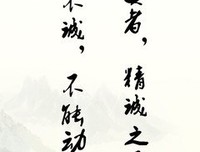 者，精诚之
不诚，不能动